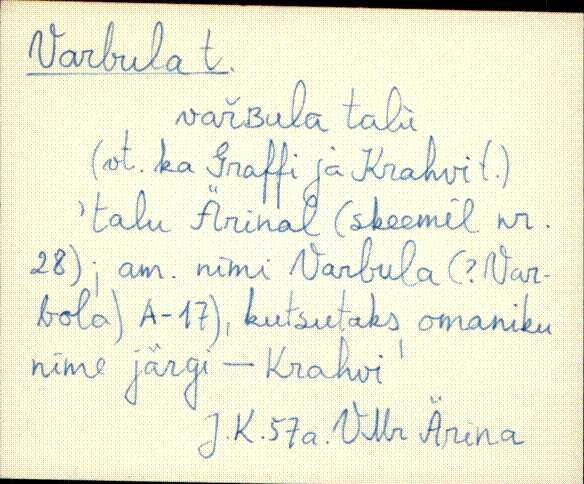 Varbula t.
vařʙula talù
(vt. ka Graffi ja Krahvi t.)
'talu Ärinal (skeemil nr.
28); am. nimi Varbula (? Var-
bola) A-17), kutsutaks omaniku
nime järgi — Krahvi'
J.K.57a. VMr Ärina